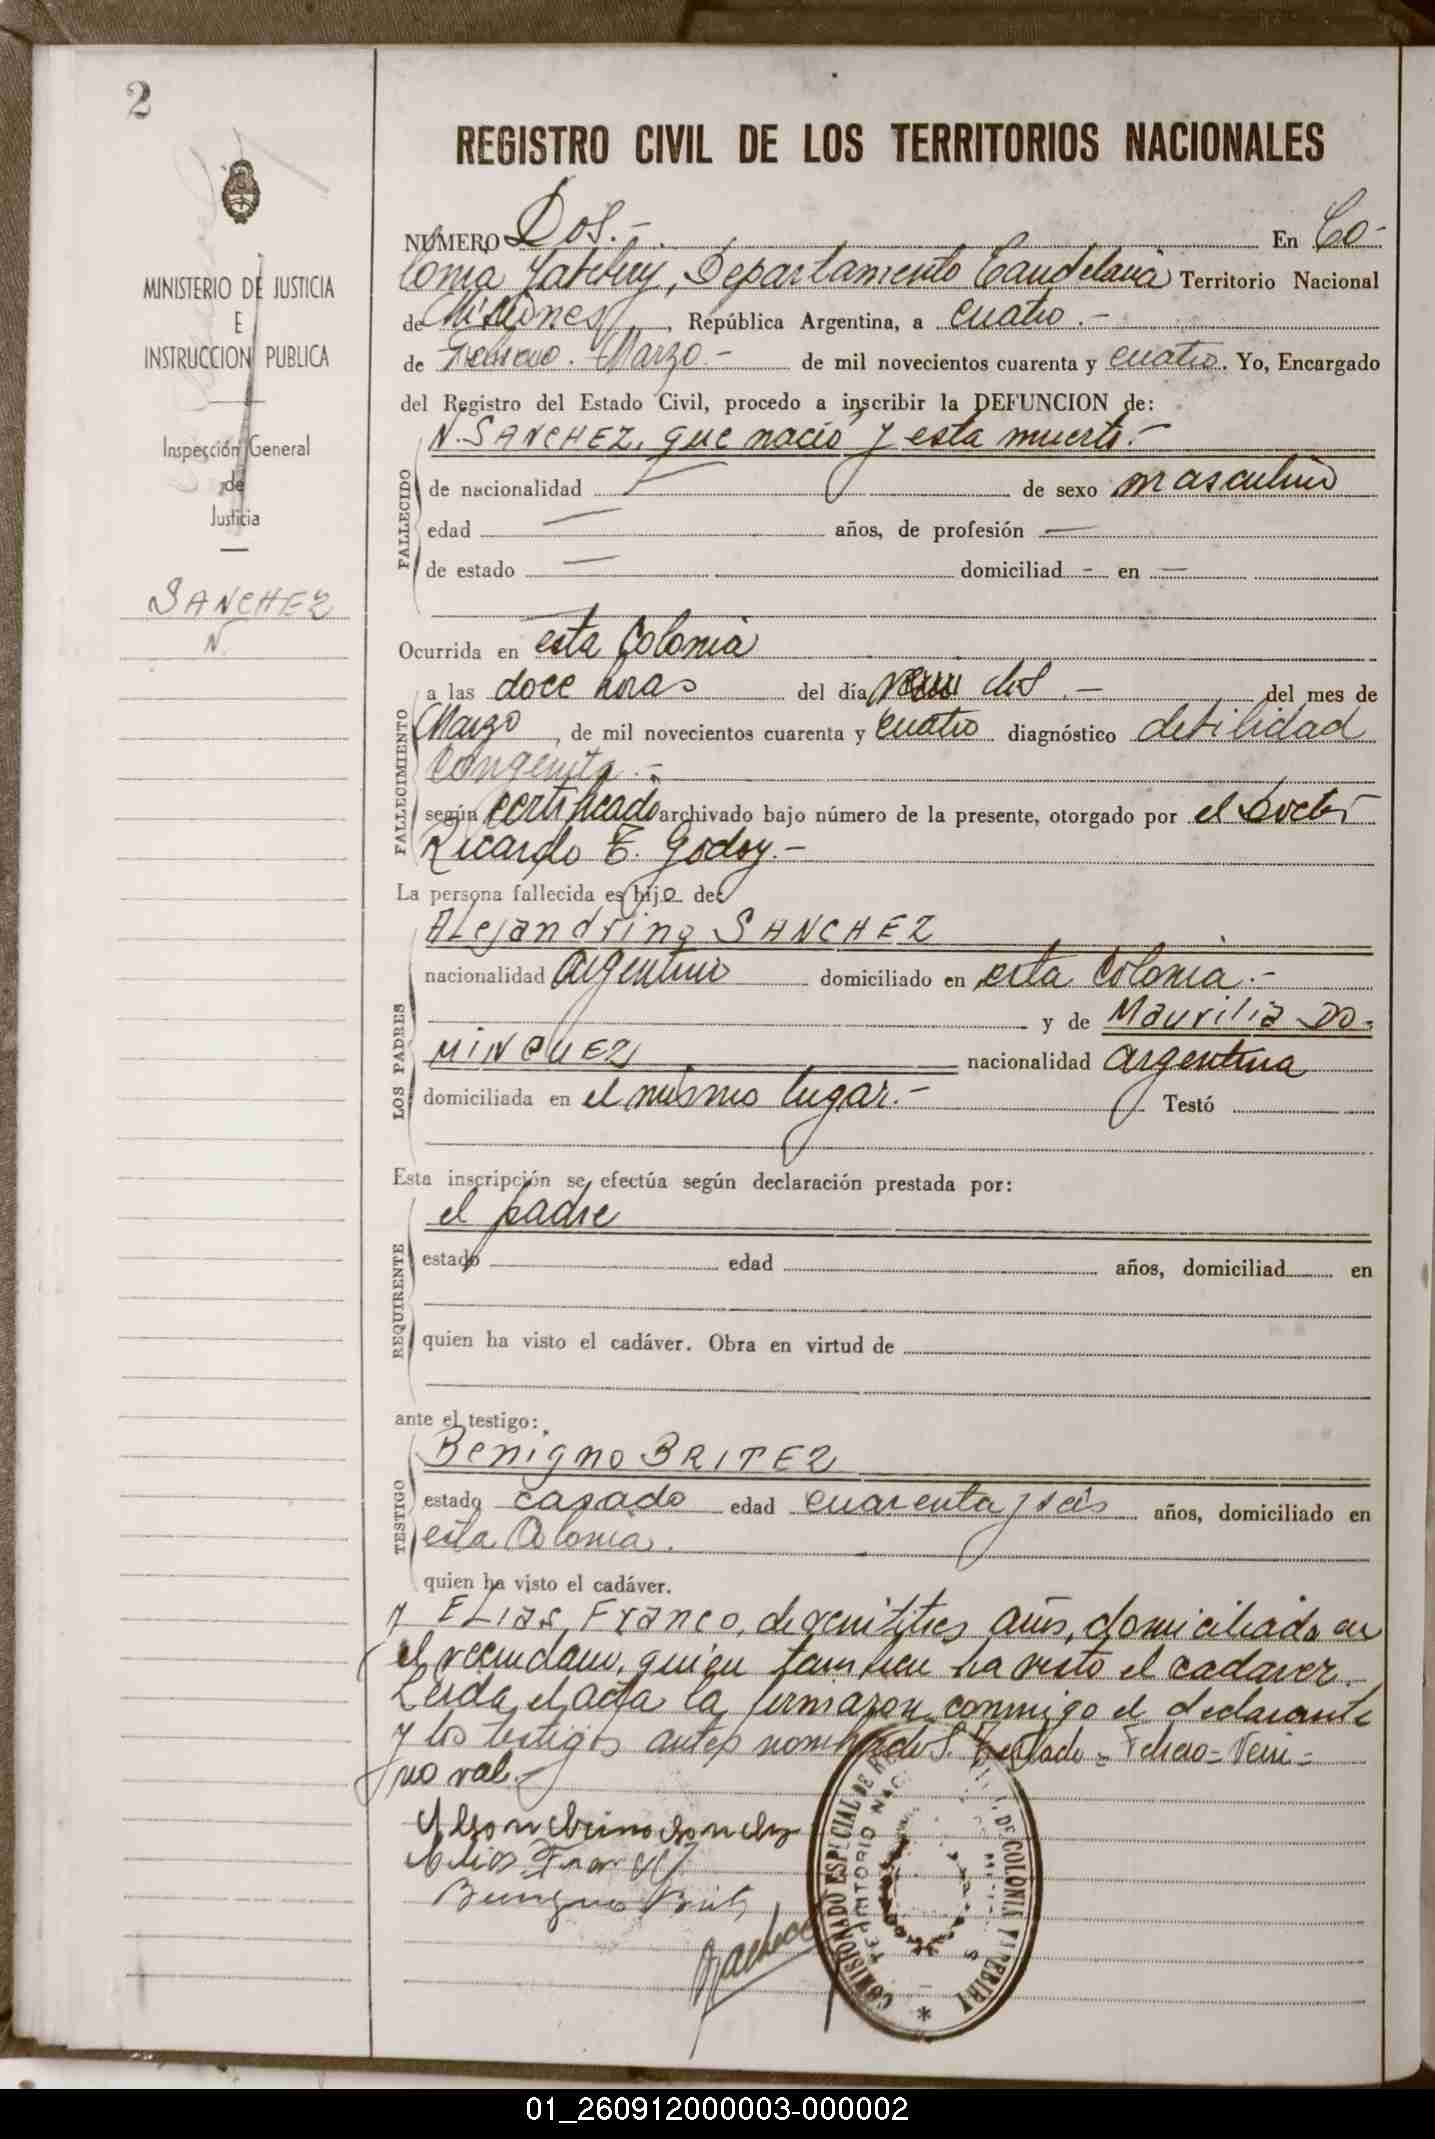 2
REGISTRO CIVIL DE LOS TERRITORIOS NACIONALES
MINISTERIO DE JUSTICIA
E
INSTRUCCION PUBLICA
Inspección General
de
Justicia
SANCHEZ
N.
NÚMERO Dos.- En Co-
lonia Departamento Candelaria Territorio Nacional
de Misiones, República Argentina, a cuatro.-
de Febrero. Marzo - de mil novecientos cuarenta y cuatro. Yo, Encargado
del Registro del Estado Civil, procedo a inscribir la DEFUNCION de:
N. SANCHEZ, que nacio y esta muerto.-
FALLECIDO
de nacionalidad — de sexo masculino
edad — años, de profesión —
de estado — domiciliad - en —
Ocurrida en esta Colonia
FALLECIMIENTO
a las doce horas del día dos.- del mes de
Marzo, de mil novecientos cuarenta y cuatro diagnóstico debilidad
congenita.-
según certificado archivado bajo número de la presente, otorgado por el doctor
Ricardo E. Godoy.-
La persona fallecida es hijo de:
LOS PADRES
Alejandrino SANCHEZ
nacionalidad argentino domiciliado en esta Colonia.-
y de Maurilia DO-
MINGUEZ nacionalidad argentina
domiciliada en el mismo lugar.- Testó
Esta inscripción se efectúa según declaración prestada por:
REQUIRENTE
el padre
estado edad años, domiciliad en
quien ha visto el cadáver. Obra en virtud de
ante el testigo:
TESTIGO
Benigno BRITEZ
estado casado edad cuarenta y seis años, domiciliado en
esta Colonia.
quien ha visto el cadáver.
y Elias Franco, de veintitres años, domiciliado en
el vecindario, quien tambien ha visto el cadaver.
Leida el acta la firmaron conmigo el declarante
y los testigos antes nombrados. Testado = Febrero = Vein =
no val.-
Elias Franco
Benigno Brites
Pacheco
COMISIONADO ESPECIAL DE COLONIA YABEBIRY
TERRITORIO NAC
01_260912000003-000002